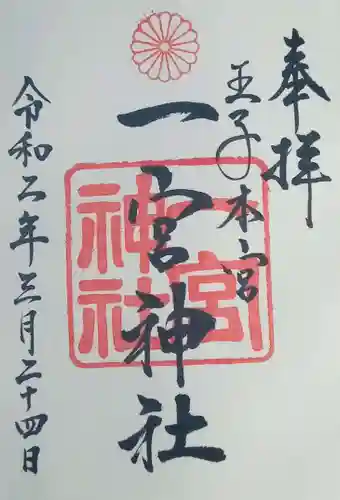 奉拝
王子本宮
一宮神社
一宮
神社
令和二年三月二十四日